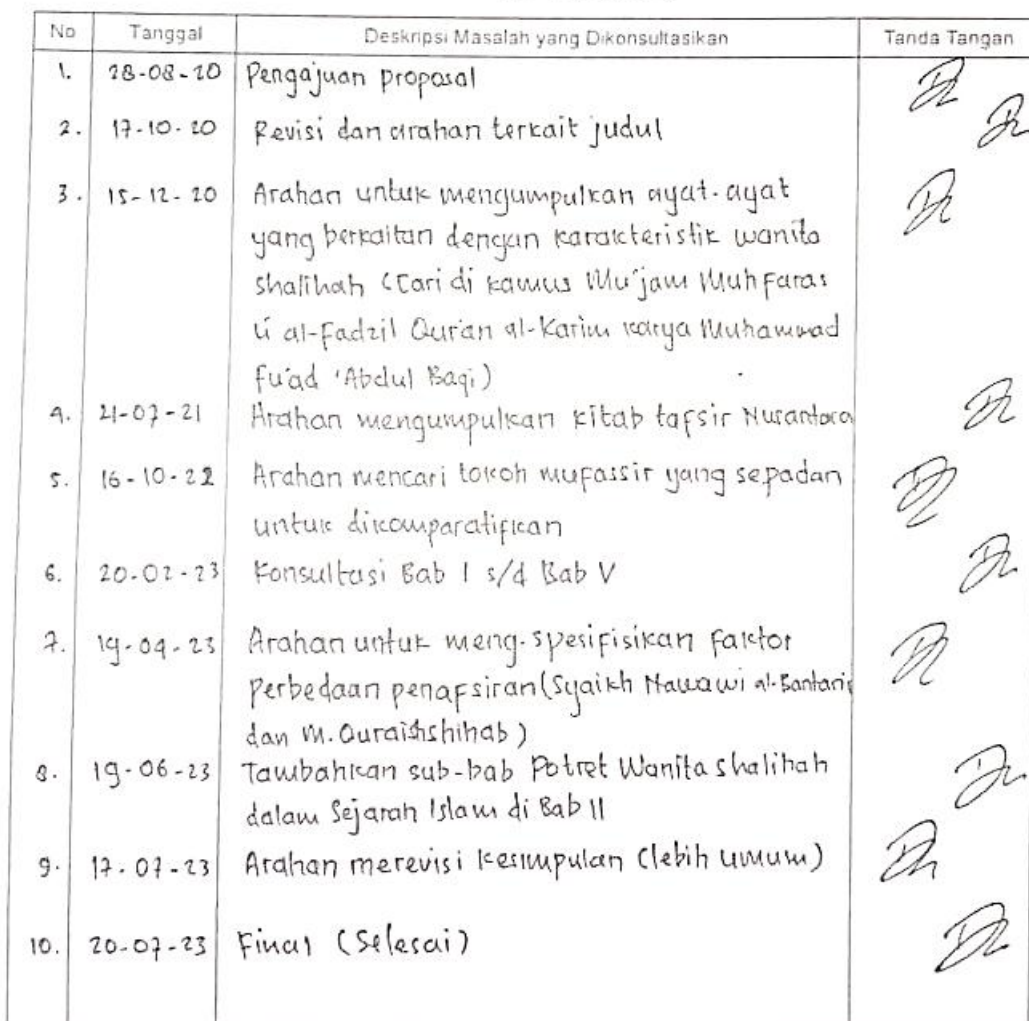 No Tanggal Deskripsi Masalah yang Dikonsultasikan Tanda Tangan
1. 28-08-20 Pengajuan proposal
2. 17-10-20 Revisi dan arahan terkait judul
3. 15-12-20 Arahan untuk mengumpulkan ayat-ayat
yang berkaitan dengan karakteristik wanita
shalihah (Cari di kamus Mu'jam Muhfaras
li al-Fadzil Qur'an al-Karim karya Muhammad
Fu'ad 'Abdul Baqi)
4. 21-07-21 Arahan mengumpulkan kitab tafsir Nusantara
5. 16-10-22 Arahan mencari tokoh mufassir yang sepadan
untuk dikomparatifkan
6. 20-02-23 Konsultasi Bab I s/d Bab V
7. 19-04-23 Arahan untuk meng-spesifisikan faktor
perbedaan penafsiran (Syaikh Nawawi al-Bantani
dan M. Quraishshihab)
8. 19-06-23 Tambahkan sub-bab Potret Wanita shalihah
dalam Sejarah Islam di Bab II
9. 17-07-23 Arahan merevisi kesimpulan (lebih umum)
10. 20-07-23 Final (Selesai)